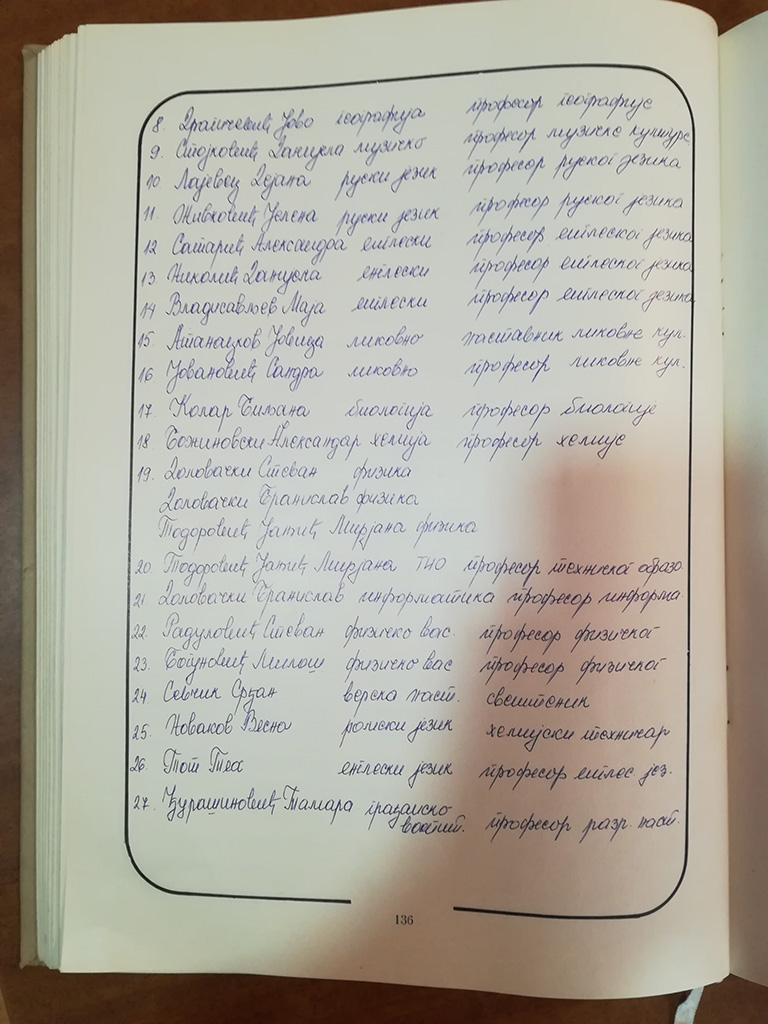 8. Драгичевић Јово географија професор географије
9. Стојковић Данијела музичко професор музичке културе
10. Лајевец Дејана руски језик професор руског језика
11. Живковић Јелена руски језик професор руског језика
12 Сатарић Александра енглески професор енглеског језика
13. Николић Данијела енглески професор енглеског језика
14 Владисављев Маја енглески професор енглеског језика
15. Атанацков Јовица ликовно наставник ликовне кул.
16 Јовановић Сандра ликовно професор ликовне кул.
17. Колар Биљана биологија професор биологије
18. Божиновски Александар хемија професор хемије
19. Доловачки Стеван физика
Доловачки Бранислав физика
Тодоровић Јагић Мирјана физика
20. Тодоровић Јагић Мирјана ТИО професор техничког образо
21. Доловачки Бранислав информатика професор информа
22. Радуловић Стеван физичко вас. професор физичког
23. Богуновић Милош физичко вас професор физичког
24. Севчик Срђан верска наст. свештеник
25. Новаков Весна ромски језик хемијски техничар
26. Тот Теа енглески језик професор енглес. јез.
27. Ђурашиновић Тамара грађанско
васпит. професор разр. наст.
136